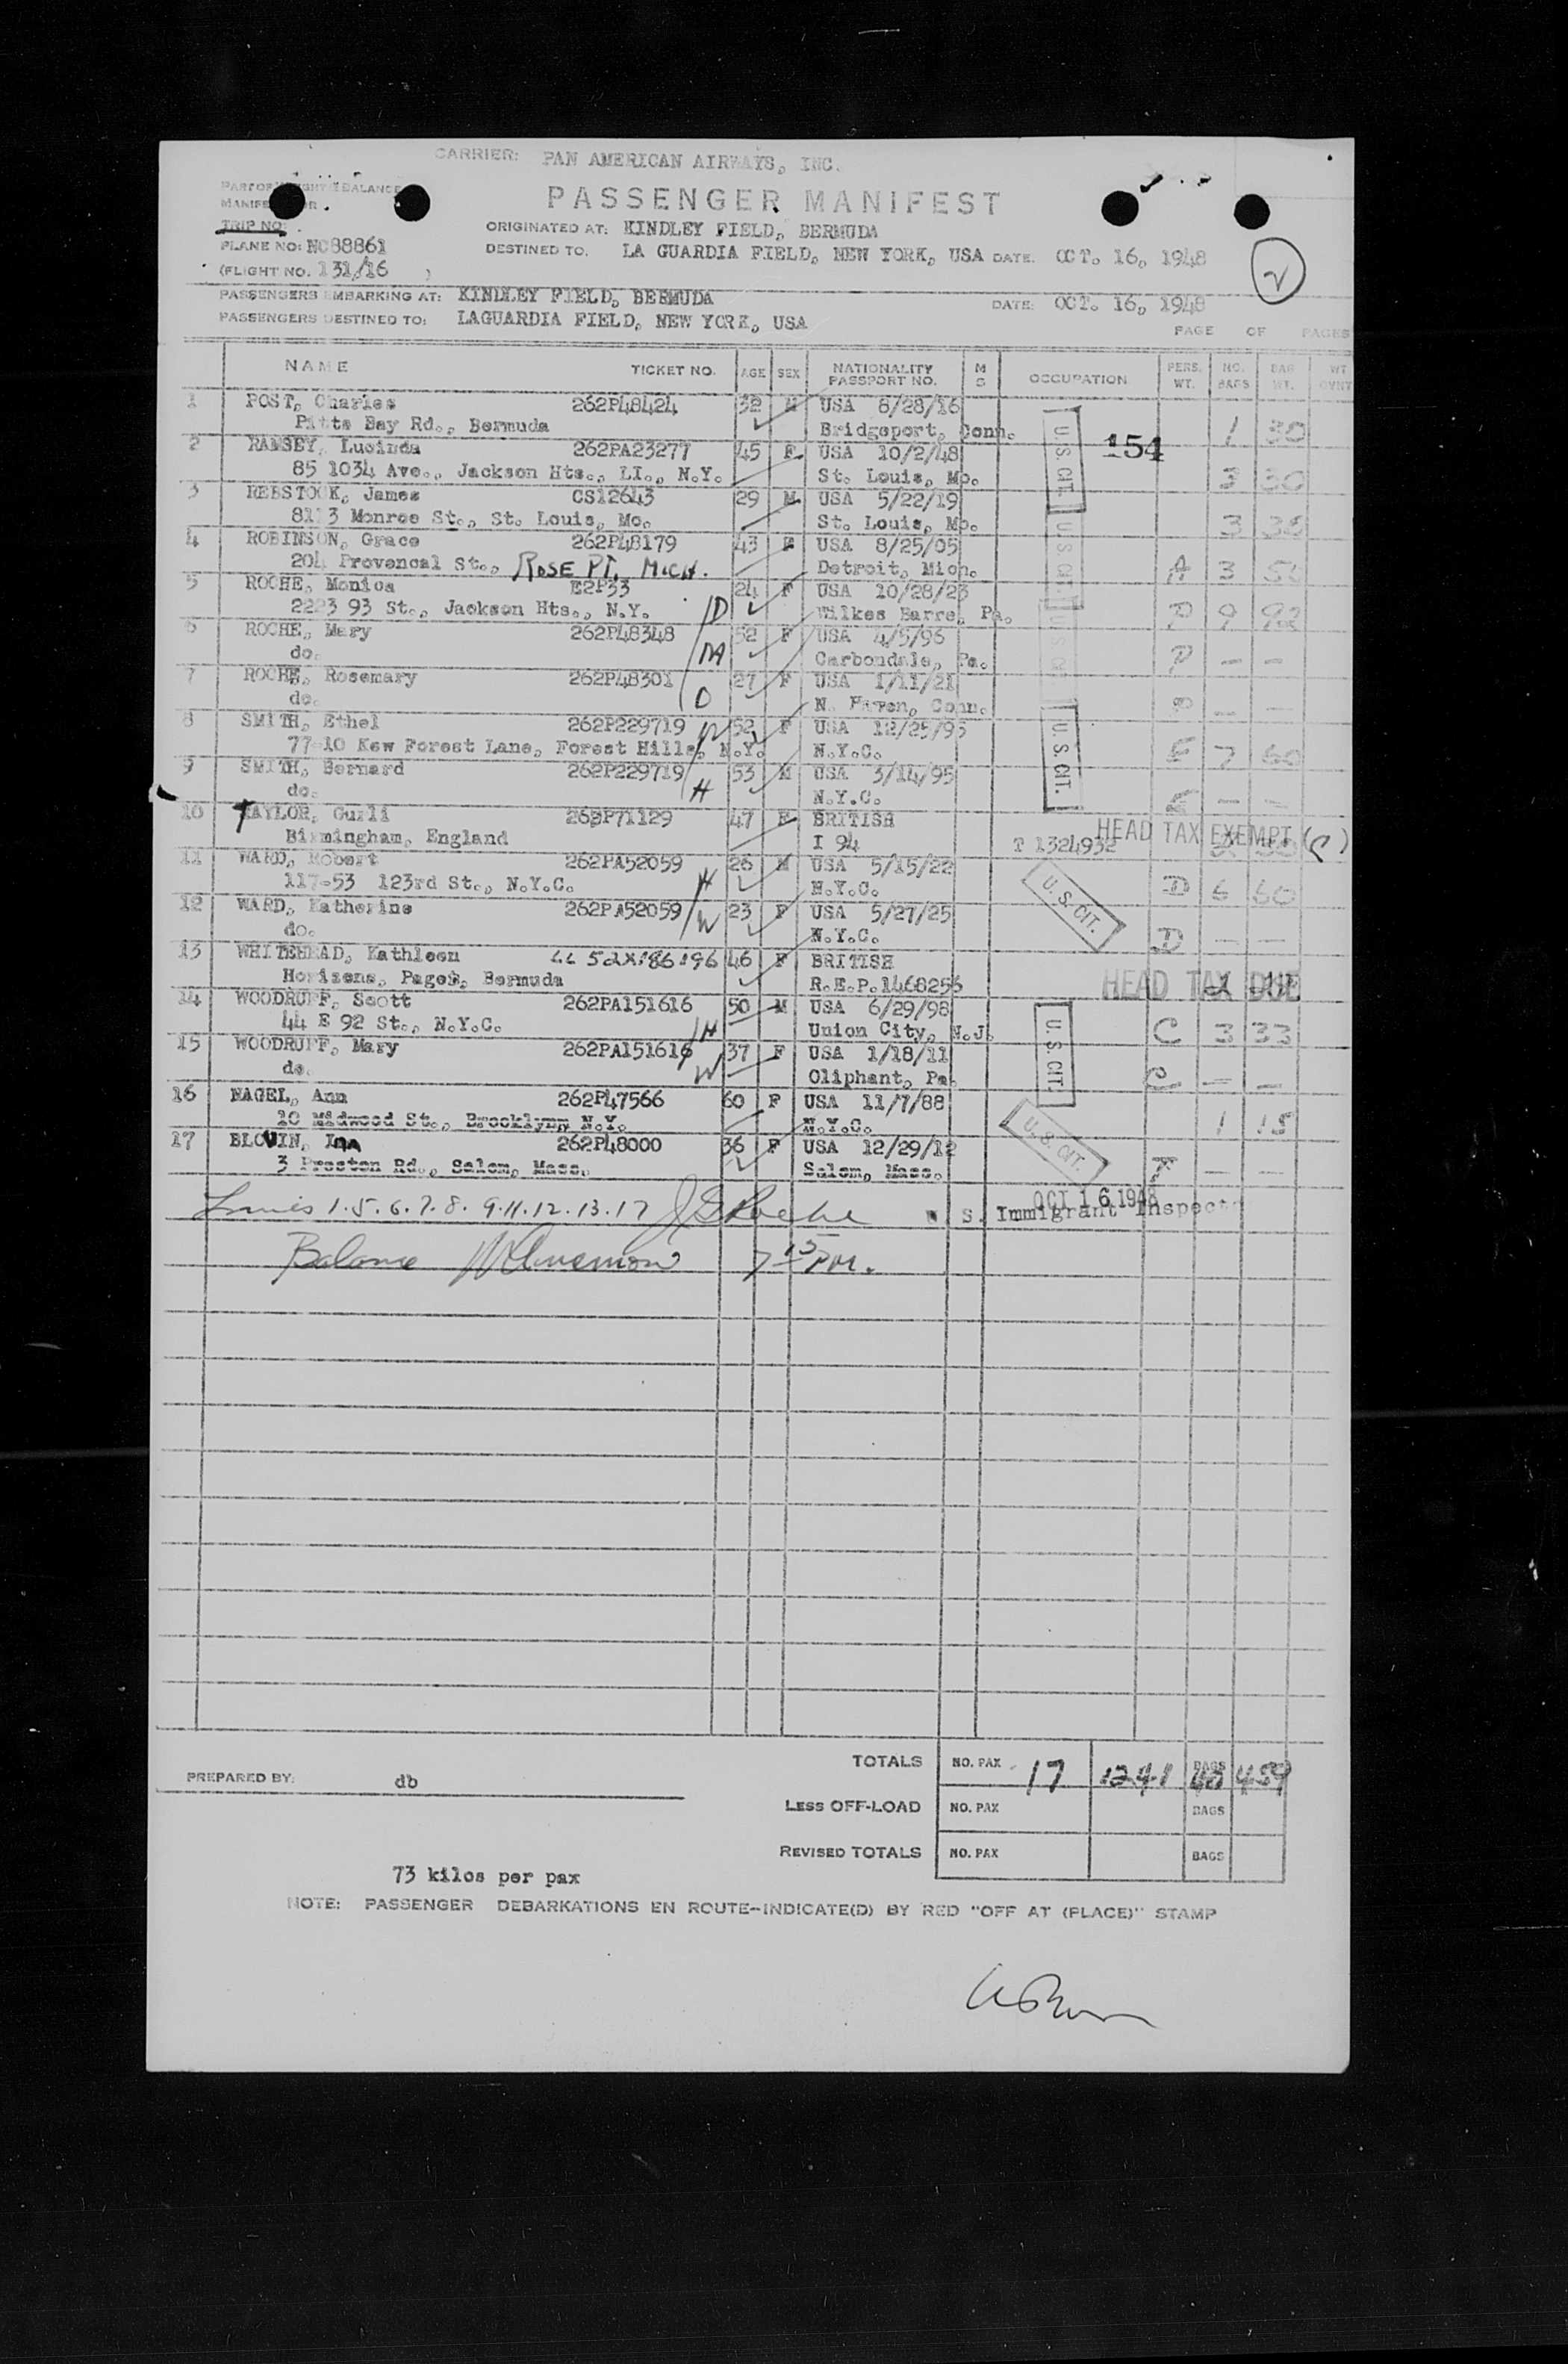 CARRIER: PAN AMERICAN AIRWAYS, INC.
PASSENGER MANIFEST
TRIP NO.
ORIGINATED AT: KINDLEY FIELD, BERMUDA
PLANE NO: NC88861
DESTINED TO. LA GUARDIA FIELD, NEW YORK, USA DATE. OCT. 16, 1948
(FLIGHT NO. 131/16 )
2
PASSENGERS EMBARKING AT: KINDLEY FIELD, BERMUDA DATE: OCT. 16, 1948
PASSENGERS DESTINED TO: LAGUARDIA FIELD, NEW YORK, USA
PAGE OF PAGES
NAME TICKET NO. AGE SEX NATIONALITY PASSPORT NO. M S OCCUPATION PERS. WT. NO. BAGS BAG WT. WT
1 POST, Charles 262P48424 32 M USA 6/28/16
Pitts Bay Rd., Bermuda Bridgeport, Conn. 1 30
2 RAMSEY, Lucinda 262PA23277 45 F USA 10/2/48 U.S. CIT. 154
85 1034 Ave., Jackson Hts., LI., N.Y. St. Louis, Mo. 3 30
3 REBSTOCK, James CS12643 29 M USA 5/22/19
8113 Monroe St., St. Louis, Mo. St. Louis, Mo. 3 38
4 ROBINSON, Grace 262P48179 43 F USA 8/25/05 U.S. CIT.
204 Provencal St., ROSE PT, MICH. Detroit, Mich. A 3
5 ROCHE, Monica E2P33 24 F USA 10/28/23
2223 93 St., Jackson Hts., N.Y. D Wilkes Barre, Pa. P 9 92
6 ROCHE, Mary 262P48348 52 F USA 4/5/96
do. Carbondale, Pa. P — —
7 ROCHE, Rosemary 262P48301 27 F USA 1/11/21
do. D N. Haven, Conn. P — —
8 SMITH, Ethel 262P229719 W 52 F USA 12/25/95 U.S. CIT.
77-10 Kew Forest Lane, Forest Hills, N.Y. N.Y.C. E 7 60
9 SMITH, Bernard 262P229719 53 M USA 3/14/95
do. H N.Y.C. E — —
10 TAYLOR, Gurli 262P71129 47 F BRITISH
Birmingham, England I 94 T 1324932 HEAD TAX EXEMPT
11 WARD, Robert 262PA52059 26 M USA 5/15/22
117-53 123rd St., N.Y.C. H N.Y.C. U.S. CIT. D 6 60
12 WARD, Katherine 262PA52059 W 23 F USA 5/27/25
do. N.Y.C. D — —
13 WHITEHEAD, Kathleen 46 F BRITISH
Horizens, Paget, Bermuda R.E.P.1468256 HEAD TAX DUE
14 WOODRUFF, Scott 262PA151616 50 M USA 6/29/98
44 E 92 St., N.Y.C. H Union City, N.J. U.S. CIT. C 3 33
15 WOODRUFF, Mary 262PA151616 37 F USA 1/18/11
do. W Oliphant, Pa. C — —
16 NAGEL, Ann 262P47566 60 F USA 11/7/88
10 Midwood St., Brooklyn, N.Y. N.Y.C. U.S. CIT. 1 15
17 BLOUIN, INA 262P48000 36 F USA 12/29/12
3 Preston Rd., Salem, Mass. Salem, Mass. K — —
1.5.6.7.8.9.11.12.13.17 OCT 16 1948
S. Immigrant Inspector
Balance 7 15 PM.
TOTALS NO. PAX 17 1241 BAGS 459
PREPARED BY: db
LESS OFF-LOAD NO. PAX BAGS
REVISED TOTALS NO. PAX BAGS
73 kilos per pax
NOTE: PASSENGER DEBARKATIONS EN ROUTE-INDICATE(D) BY RED "OFF AT (PLACE)" STAMP